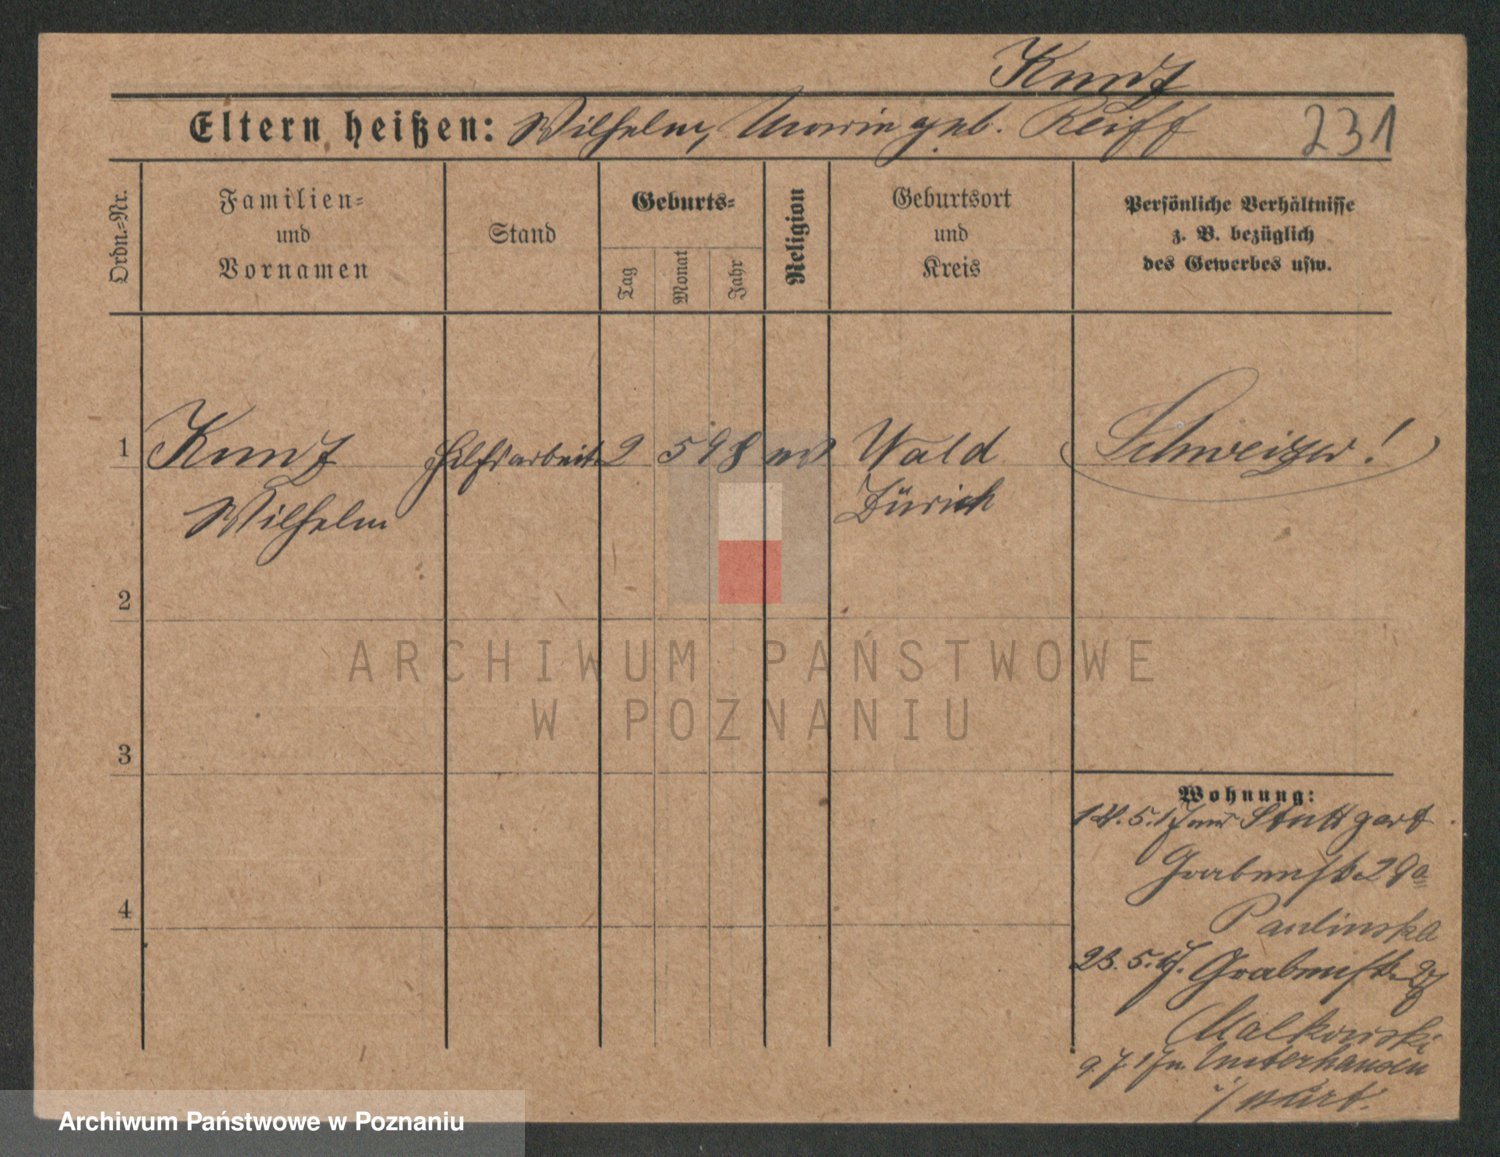 Kunz
Eltern heißen: Wilhelm, Marie geb. Reiff
231
Ordn.-Nr.
Familien-
und
Vornamen
Stand
Geburts-
Tag
Monat
Jahr
Religion
Geburtsort
und
Kreis
Persönliche Verhältnisse
z. B. bezüglich
des Gewerbes usw.
1 Kunz Hilfsarbeit. 2 5 98 Wald Schweizer!
Wilhelm Zürich
2
ARCHIWUM PAŃSTWOWE
W POZNANIU
3
Wohnung:
14.5.17 aus Stuttgart
4
Grabenstr. 28a
Paulinska
23.5.17. Grabenstr. 27
Malkowski
9 7 17 n. Unterhausen
i/ Württ.
Archiwum Państwowe w Poznaniu